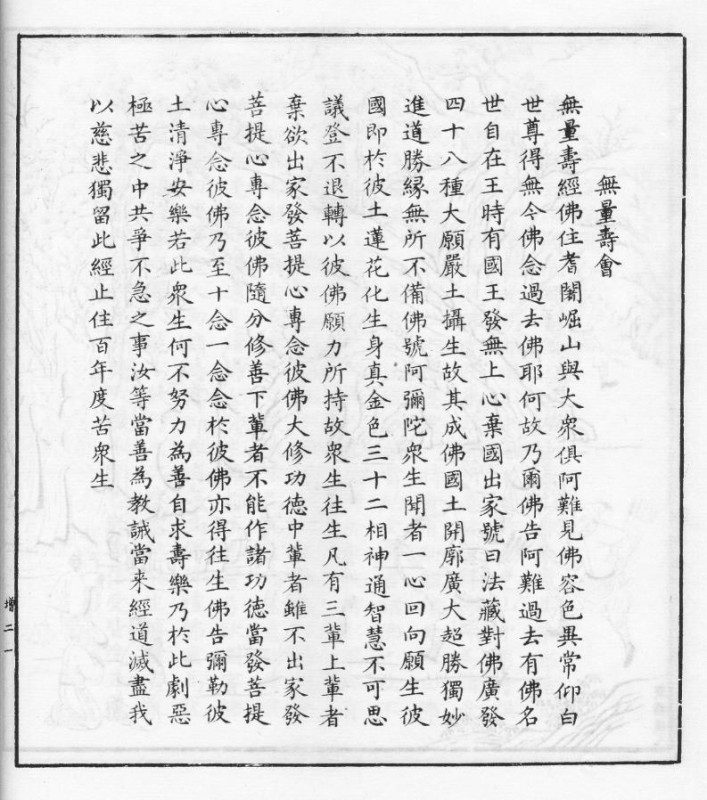 無量壽會
無量壽經佛住耆闍崛山與大衆俱阿難見佛容色異常仰白
世尊得無今佛念過去佛耶何故乃爾佛告阿難過去有佛名
世自在王時有國王發無上心棄國出家號曰法藏對佛廣發
四十八種大願嚴土攝生故其成佛國土開廓廣大超勝獨妙
進道勝緣無所不備佛號阿彌陀衆生聞者一心回向願生彼
國即於彼土蓮花化生身真金色三十二相神通智慧不可思
議登不退轉以彼佛願力所持故衆生往生凡有三輩上輩者
棄欲出家發菩提心專念彼佛大修功德中輩者雖不出家發
菩提心專念彼佛隨分修善下輩者不能作諸功德當發菩提
心專念彼佛乃至十念一念念於彼佛亦得往生佛告彌勒彼
土清淨安樂若此衆生何不努力為善自求壽樂乃於此劇惡
極苦之中共爭不急之事汝等當善為教誡當来經道滅盡我
以慈悲獨留此經止住百年度苦衆生
增二一